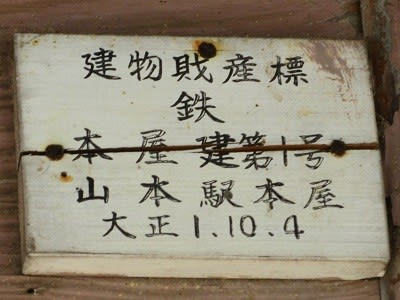 建物財産標
鉄
本屋建第1号
山本駅本屋
大正1.10.4